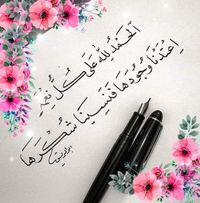 الحَمدُ لله عَلى كُلِّ نِعَمٍ
اِعتَدنَا وُجُودهَا فَنَسِينَا شُكرَهَا